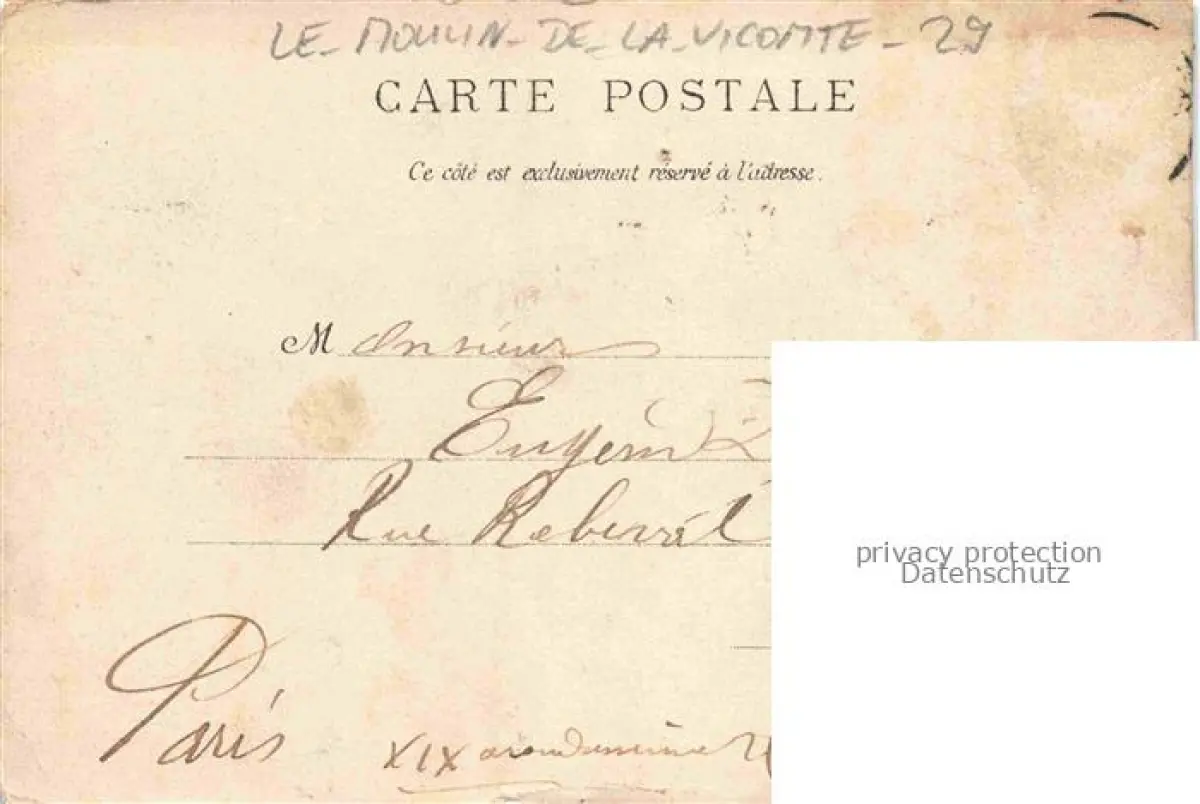 LE-MOULIN-DE-LA-VICOMTE-29
CARTE POSTALE
Ce côté est exclusivement réservé à l'adresse.
Monsieur
Eugène
Rue Rebeval
privacy protection
Datenschutz
Paris
XIX arondissement